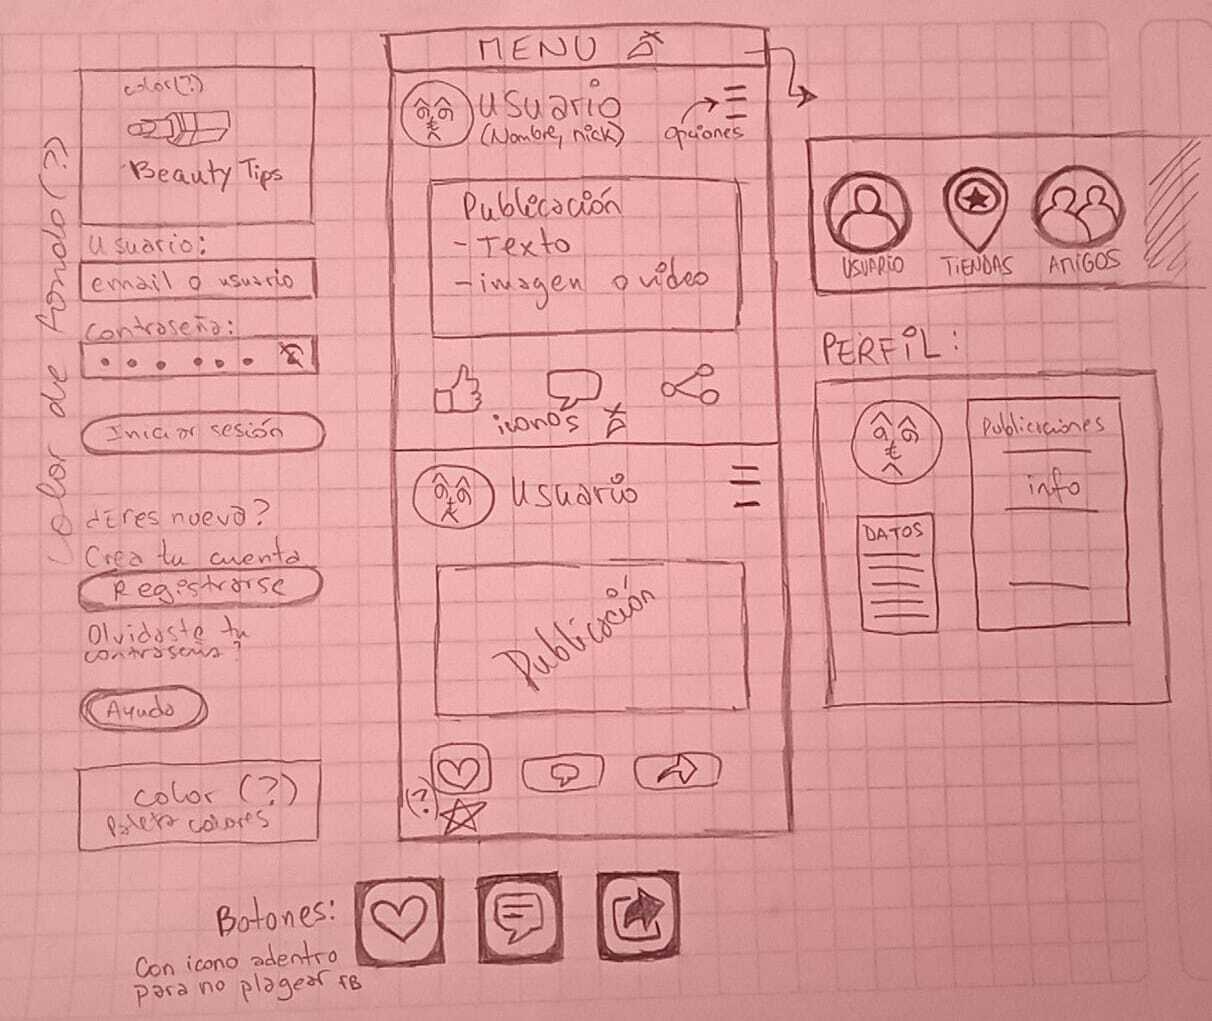 color de fondo (?)
color(?)
Beauty Tips
Usuario:
email o usuario
Contraseña:
Iniciar sesión
¿Eres nueva?
Crea tu cuenta
Registrarse
Olvidaste tu
contraseña?
Ayuda
color (?)
Paleta colores
MENU
Usuario
(Nombre, nick)
opciones
Publicación
- Texto
- imagen o video
iconos
Usuario
Publicación
(?)
USUARIO
TIENDAS
AMIGOS
PERFIL:
Publicaciones
info
DATOS
Botones:
Con icono adentro
para no plagear FB